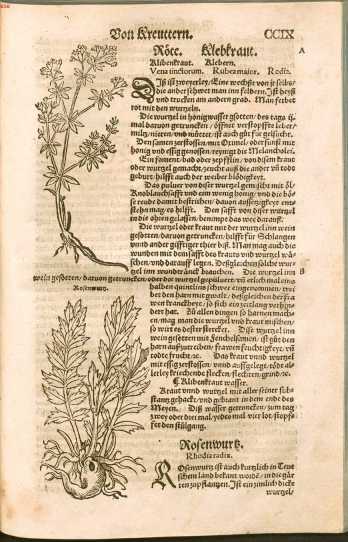 Von Kreuttern.
CCIX
Röte. Klebkraut.
A
Klibenkraut. Klebern.
Vena tinctorum. Rubea maior. Rodix.
Diß ist zweyerley / Eine wechst von jr selbs /
die ander sehwet man inn feldern. Ist heyß
und trucken am andern grad. Man ferbet
rot mit den wurtzeln.
Die wurtzel inn honigwasser gsotten / des tags ij.
mal daruon getruncken / öffnet verstopffte leber /
miltz / nieren und mütter / ist auch gůt für gelsucht.
Den samen zerstossen / mit Oximel / oder sunst mit
honig und essig genossen / reynigt die Melancholei.
Ein foment / bad oder zepfflin / von disem kraut
oder wurtzel gemacht / zeucht auß die ander und todte
geburt / hilfft auch der weiber blödigkeyt.
Das puluer von diser wurtzel gemischt mit öl /
Knoblauchsafft und ein wenig honig / und die
steude damit bestrichen / dauon
stehn mag / es hilfft. Den safft von diser wurtzel
in die ohren gelassen / benimpt das wee darauß.
Die wurtzel oder kraut mit der wurtzel inn wein
gesotten / daruon getruncken / hilfft für Schlangen
und ander gifftiger thier biß. Man mag auch die
wunden mit dem safft des krauts und wurtzel wä-
schen / und darauff legen. Desgleichen solche wur-
tzel inn wundträncken brauchen. Die wurtzel inn
B
wein gesotten / daruon getruncken / oder der wurtzel gepuluert / und etlich mal eins
Rosenwurtz.
halben quintlins schwer eingenommen / trei-
bet den harn mit gwalt / desgleichen der fra-
wen kranckheyt / so sich ein zeitlang verhin-
dert hat. Zů allen dingen so harnen mach-
en / mag man die wurtzel und kraut mischen /
so wirt es dester stercker. Dise wurtzel inn
wein gesotten mit Fenchelsamen / ist gůt den
harn außzutreiben / frawen feuchtigkeyt / und
todte frucht / ec. Das kraut und wurtzel
mit essig zerstossen / und auffgelegt / tödt al-
lerley kriechende flecken / flechten / grind / ec.
Klibenkraut wasser.
Kraut und wurtzel mit aller seiner sub-
stantz gehackt / und gebrant in dem ende des
Meyen. Diß wasser getruncken / zum tag
zwey oder drei mal / yedes mal vier lot / stopf-
fet den stůlgang.
Rosenwurtz.
Rhodia radix.
Rosenwurtz ist auch kurtzlich in Teut-
schem land bekant worden / in die gär-
ten zůpflantzen. Ist ein zimlich dicke
wurtzel /